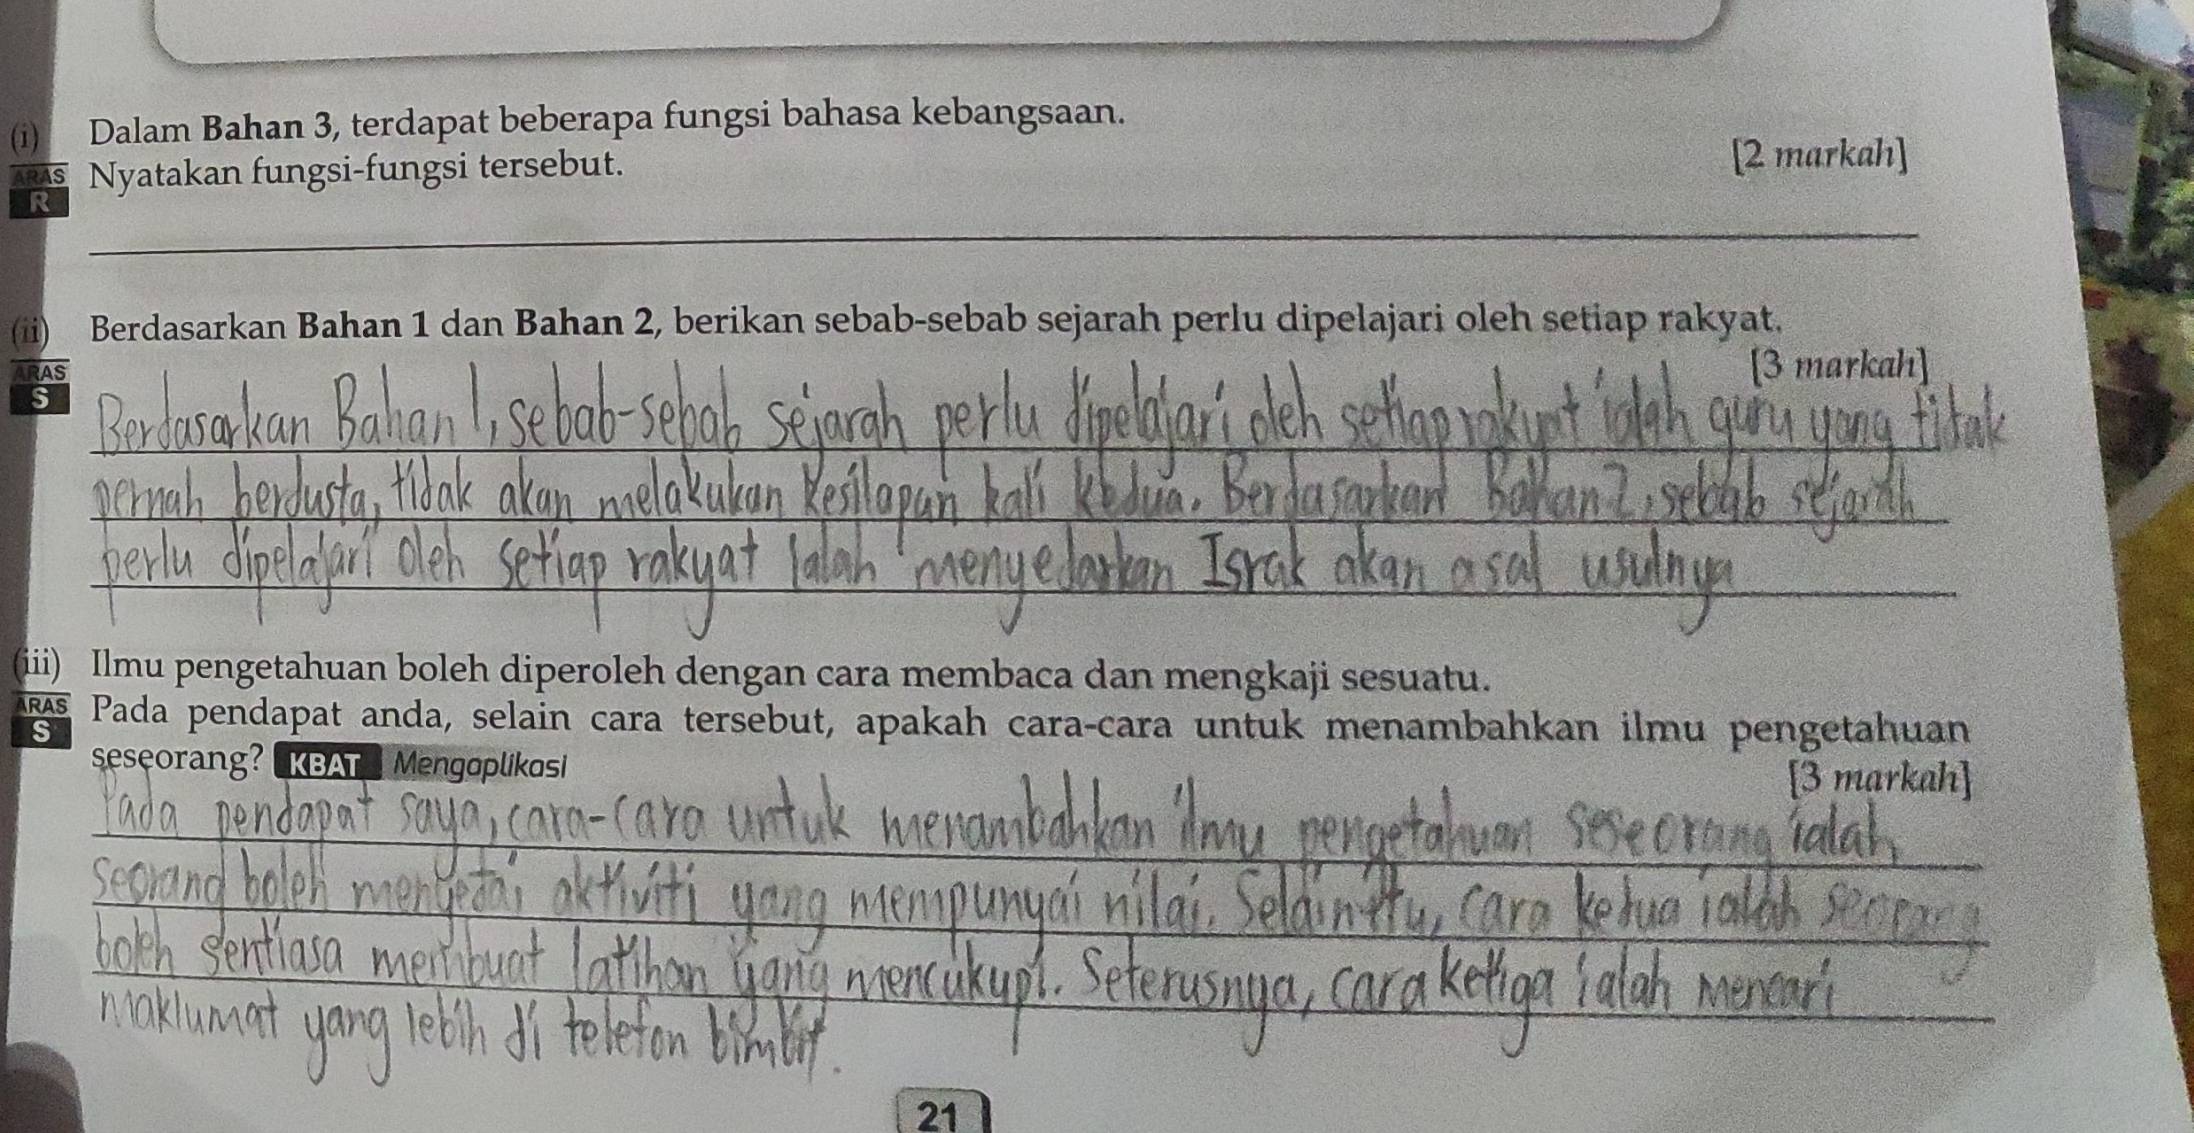 (i) Dalam Bahan 3, terdapat beberapa fungsi bahasa kebangsaan.
ARAS Nyatakan fungsi-fungsi tersebut. [2 markah]
R
(ii) Berdasarkan Bahan 1 dan Bahan 2, berikan sebab-sebab sejarah perlu dipelajari oleh setiap rakyat.
ARAS [3 markah]
S
Berdasarkan Bahan 1, sebab-sebab sejarah perlu dipelajari oleh setiap rakyat ialah guru yang tidak
pernah berdusta, tidak akan melakukan kesilapan kali kedua. Berdasarkan Bahan 2, sebab sejarah
perlu dipelajari oleh setiap rakyat ialah menyedarkan Israk akan asal usulnya
(iii) Ilmu pengetahuan boleh diperoleh dengan cara membaca dan mengkaji sesuatu.
ARAS Pada pendapat anda, selain cara tersebut, apakah cara-cara untuk menambahkan ilmu pengetahuan
S seseorang? KBAT Mengaplikasi [3 markah]
Pada pendapat saya, cara-cara untuk menambahkan ilmu pengetahuan seseorang ialah
seorang boleh menyertai aktiviti yang mempunyai nilai. Selain itu, cara kedua ialah seorang
boleh sentiasa membuat latihan yang mencukupi. Seterusnya, cara ketiga ialah mencari
maklumat yang lebih di telefon bimbit.
21